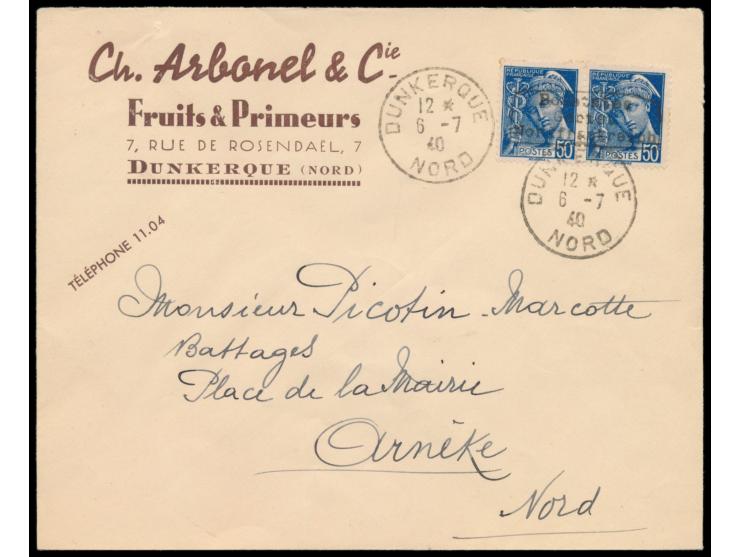 Ch. Arbonel & Cie
Fruits & Primeurs
7, RUE DE ROSENDAËL, 7
DUNKERQUE (NORD)
TÉLÉPHONE 11.04
DUNKERQUE
12 *
6 -7
40
NORD
RÉPUBLIQUE FRANÇAISE
POSTES 50
POSTES 50
DUNKERQUE
12 *
6 -7
40
NORD
Monsieur Picotin-Marcotte
Battages
Place de la Mairie
Arnèke
Nord